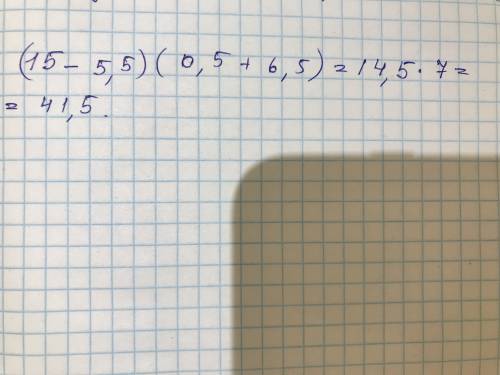 (15 - 5,5)(0,5 + 6,5) = 14,5 · 7 =
= 41,5.